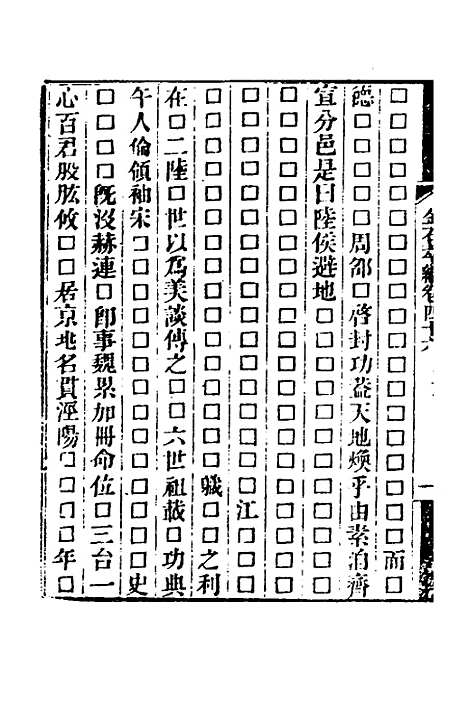 □□□□□□□□□□□□□□□□□□□而□
德□□□□□周邵□啓封功益天地煥乎由素泊齊
宜分邑是日陸侯避地□□□□□□□□□□□□
□□□□□□□□□□□□□□□□□□□□□
□□□□□□□□□□□□□□□□□江□□□
□□□□□□□□□□□□□□□□職□□之利
在□二陸□世以爲美談傳之□□六世祖載□功典
午人倫領袖宋□□□□□□□□□□□□□□史
□□□□旣沒赫連□卽事魏累加冊命位□三台一
心百君股肱攸□□居京地名貫涇陽□□□□年□
金石萃編卷四十六